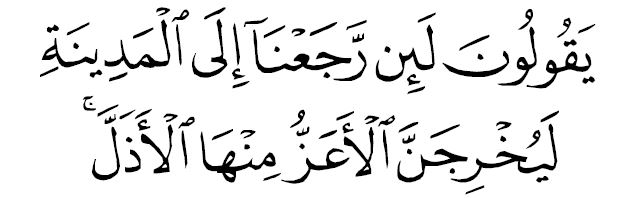 يَقُولُونَ لَئِن رَّجَعْنَآ إِلَى ٱلْمَدِينَةِ
لَيُخْرِجَنَّ ٱلْأَعَزُّ مِنْهَا ٱلْأَذَلَّ ۚ